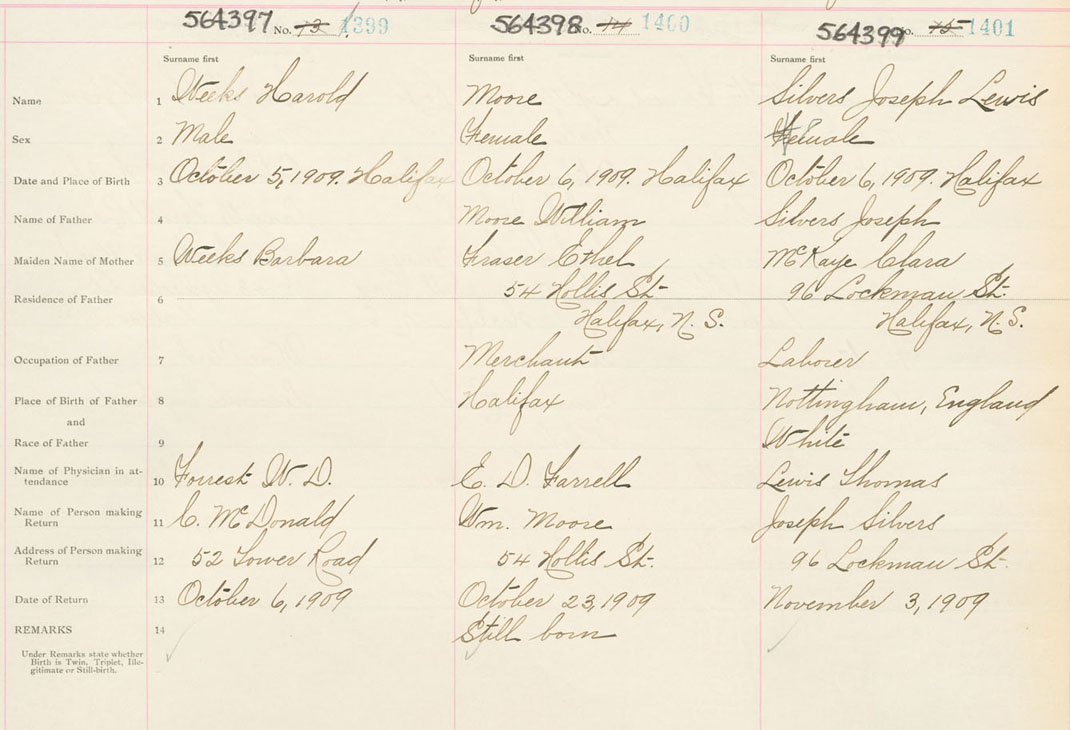 564397 No. 13 1399 564398 No. 14 1400 564399 No. 15 1401
Surname first Surname first Surname first
Name 1 Weeks Harold Moore Silvers Joseph Lewis
Sex 2 Male Female Female
Date and Place of Birth 3 October 5, 1909. Halifax October 6, 1909. Halifax October 6, 1909. Halifax
Name of Father 4 Moore William Silvers Joseph
Maiden Name of Mother 5 Weeks Barbara Fraser Ethel McKaye Clara
Residence of Father 6 54 Hollis St. 96 Lockman St.
Halifax, N. S. Halifax, N. S.
Occupation of Father 7 Merchant Laborer
Place of Birth of Father 8 Halifax Nottingham, England
and
Race of Father 9 White
Name of Physician in at-
tendance 10 Forrest W. D. E. D. Farrell Lewis Thomas
Name of Person making
Return 11 C. McDonald Wm. Moore Joseph Silvers
Address of Person making
Return 12 52 Tower Road 54 Hollis St. 96 Lockman St.
Date of Return 13 October 6, 1909 October 23, 1909 November 3, 1909
REMARKS 14 Still born
Under Remarks state whether
Birth is Twin, Triplet, Ille-
gitimate or Still-birth.